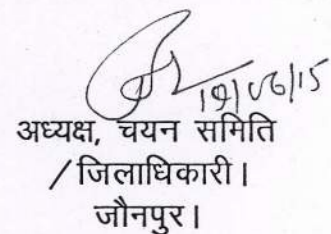 19/06/15
अध्यक्ष, चयन समिति
/जिलाधिकारी।
जौनपुर।